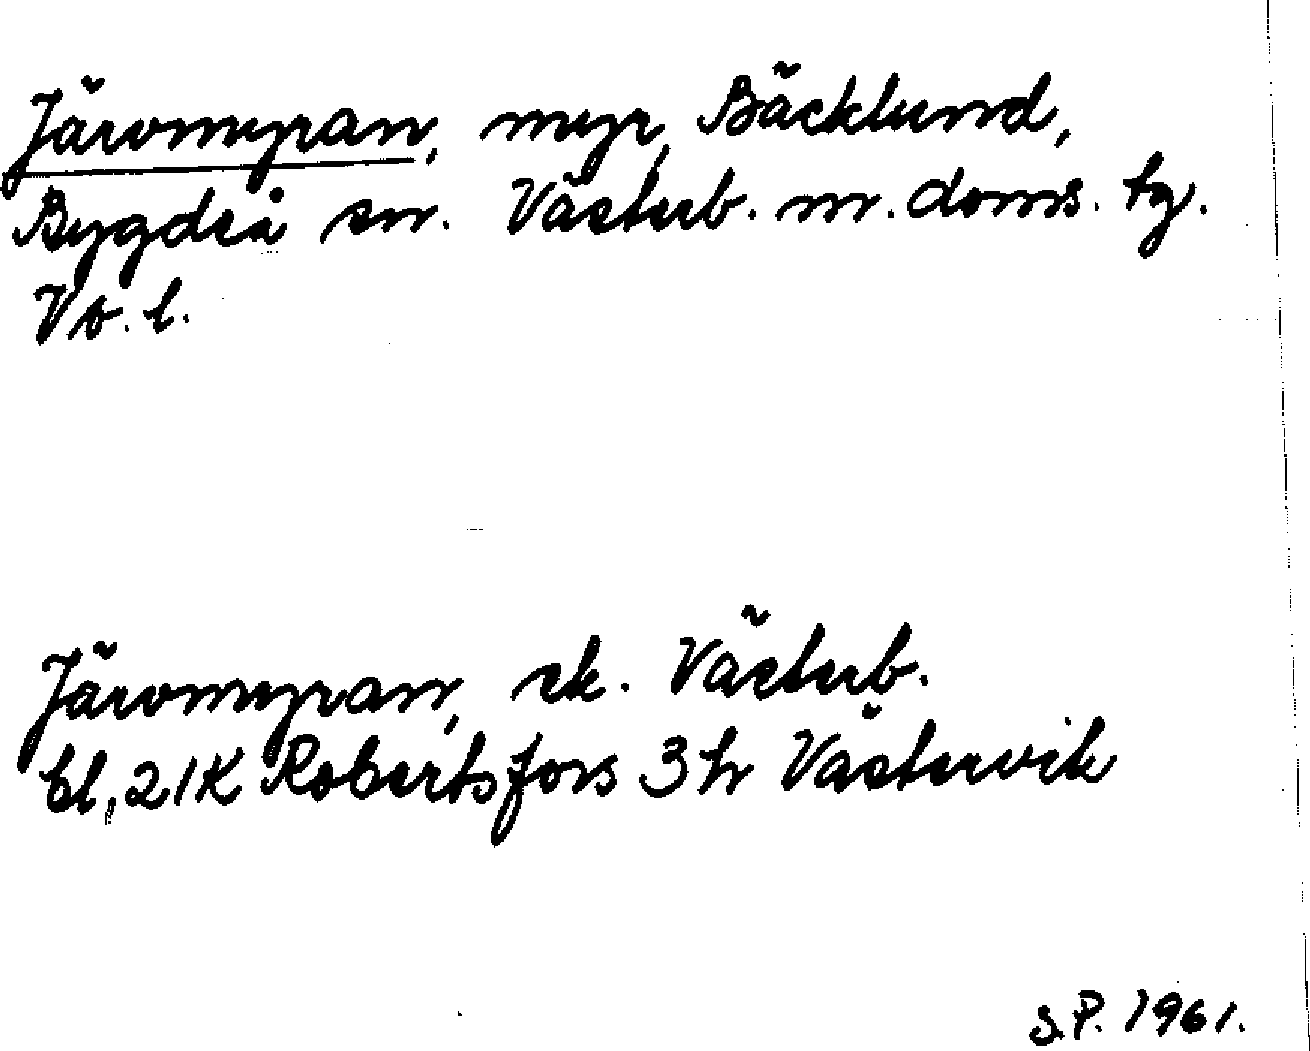 Järvmyran, myr, Bäcklund,
Bygdeå sn. Västerb. n. doms. tg.
Vb. l.
Järvmyran, ek. Västerb.
bl, 21K Robertsfors 3h Västervik
S.P. 1961.